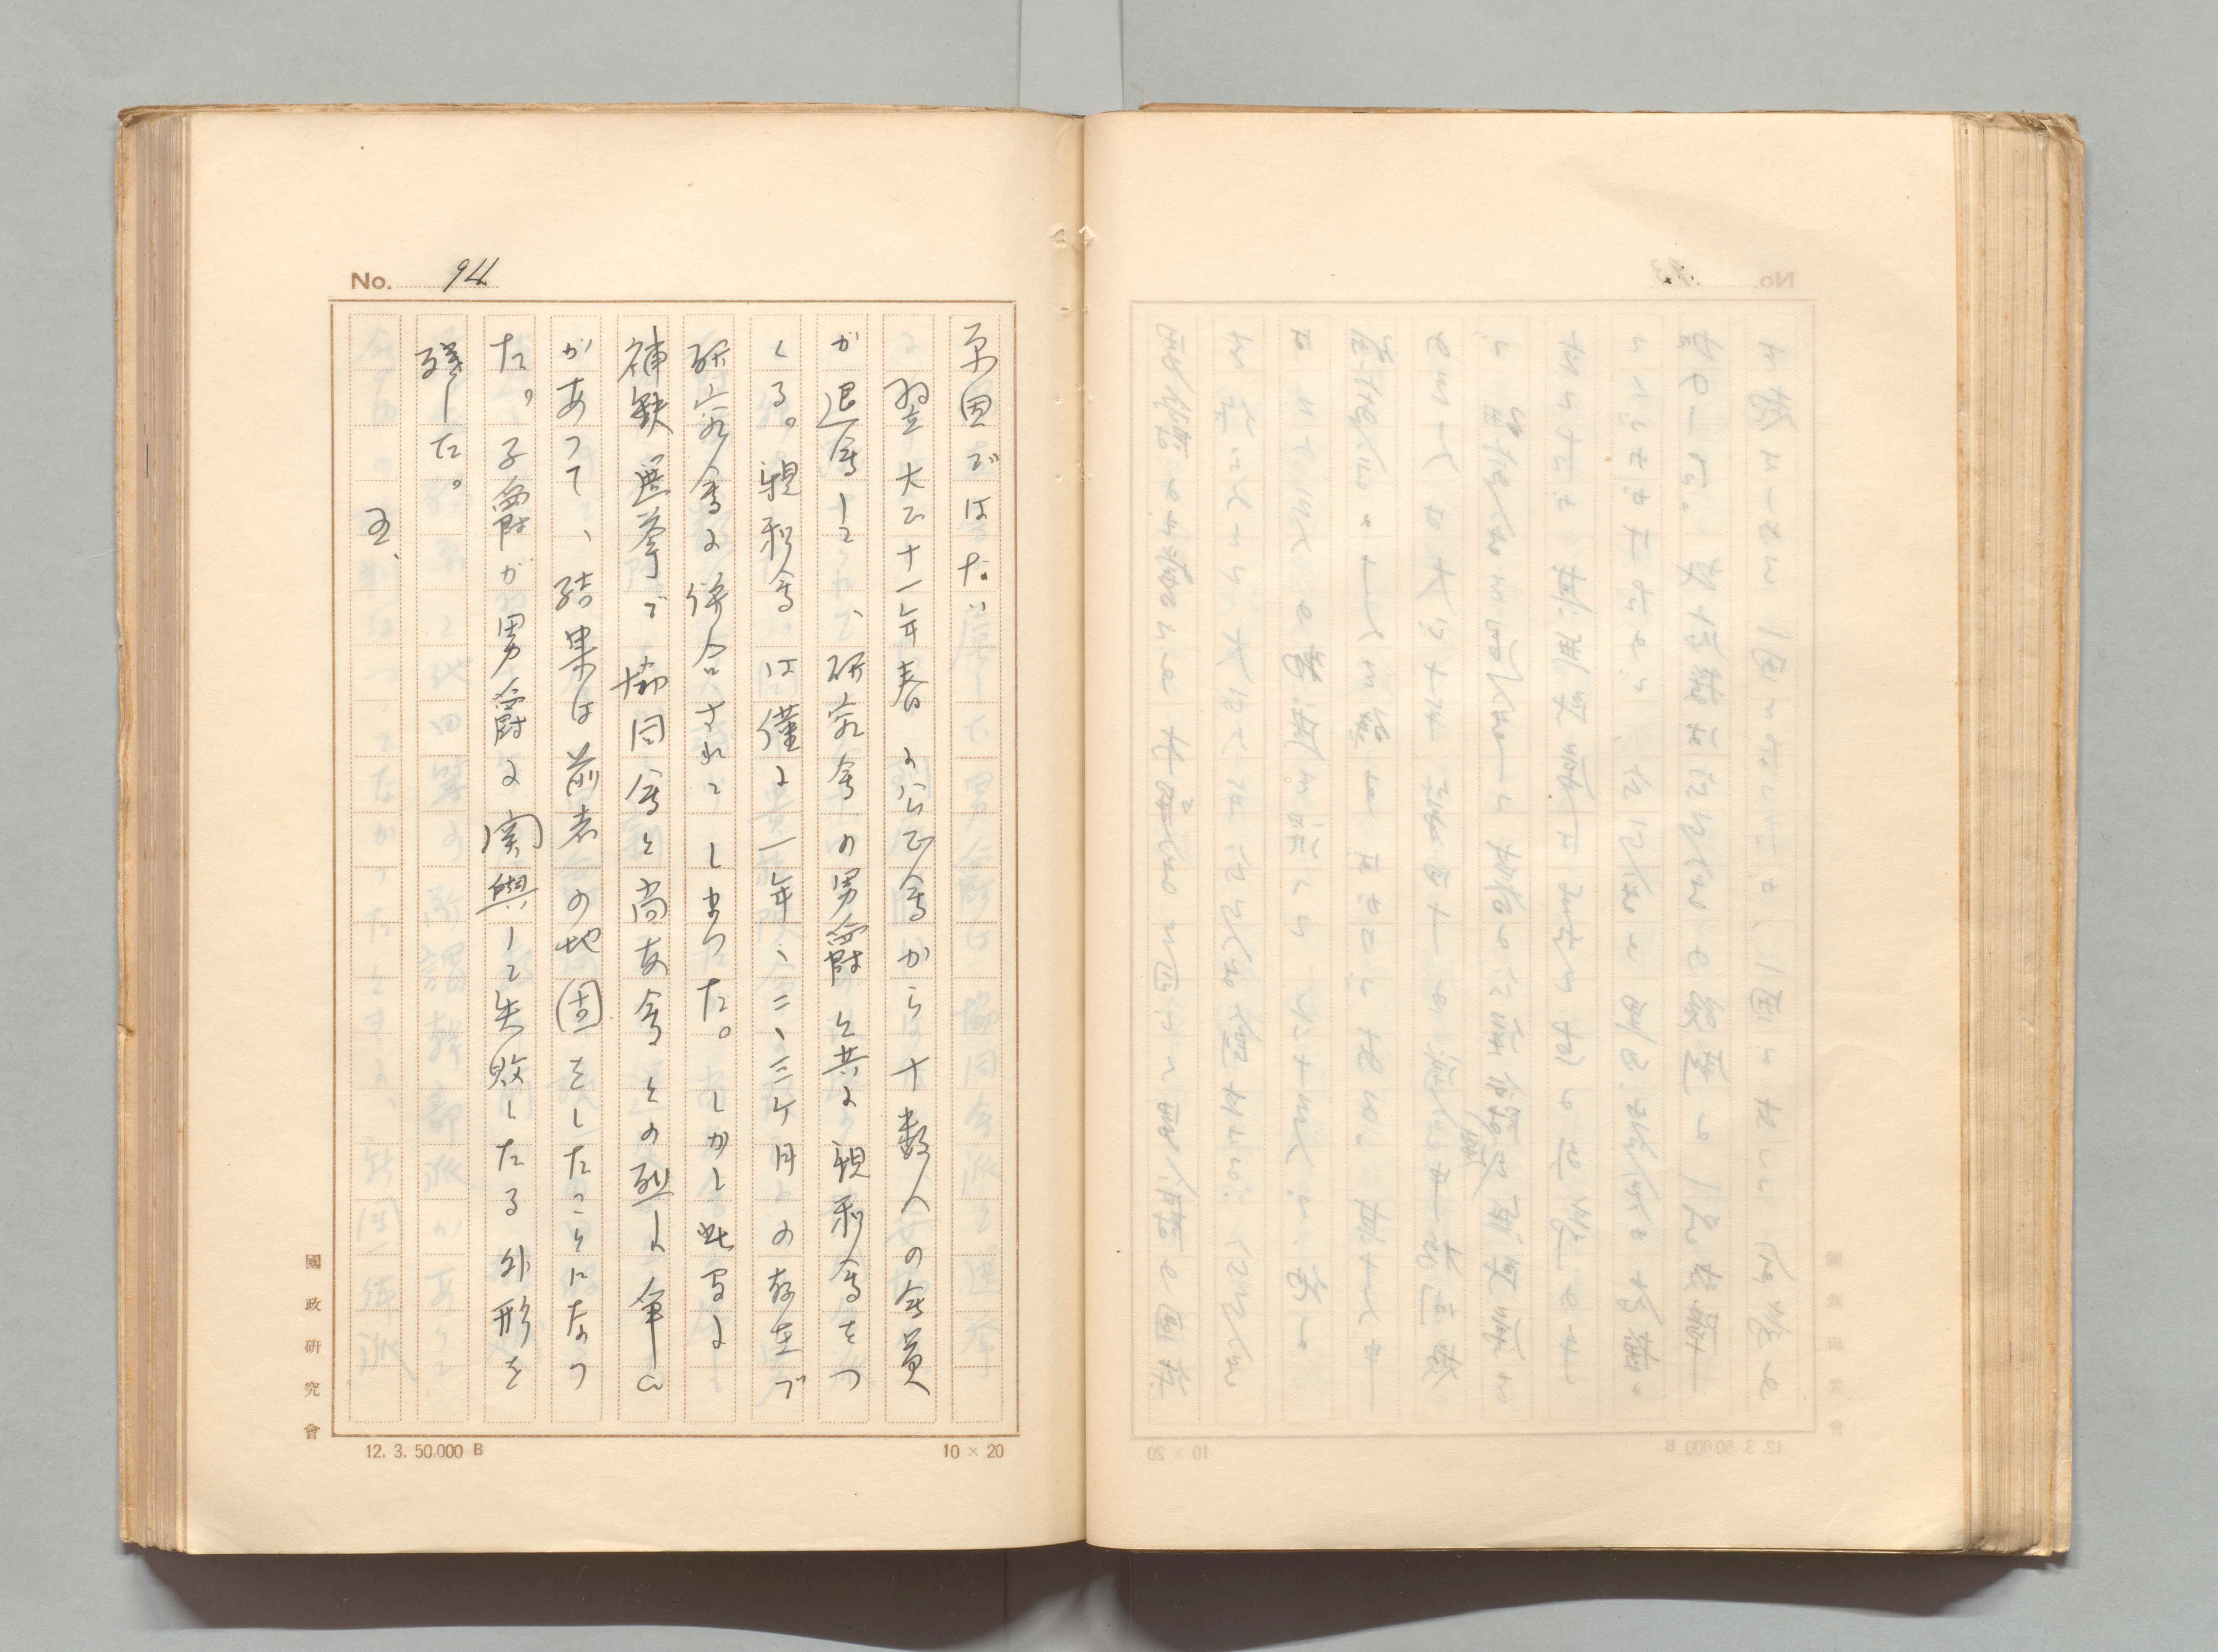 No. 94
原因ではない
翌大正十一年春に公正會から十数人の会員
が退會して、研究会の男爵と共に親和會をつ
くる。親和会は僅に一年、二、三ケ月の存在で
研究會に併合されてしまつた。しかし此寄に
補缺選挙で協同會と尚友會との烈しい争ひ
があつて、結果は前者の地固をしたことになつ
た。子爵が男爵に関與して失敗したる外形を
残した。
五、
國政研究會
12. 3. 50.000 B
10 × 20